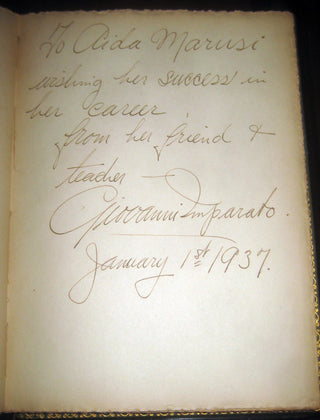 To Aida Marusi
wishing her success in
her career,
from her friend &
teacher —
Giovanni Imparato.
January 1st 1937.